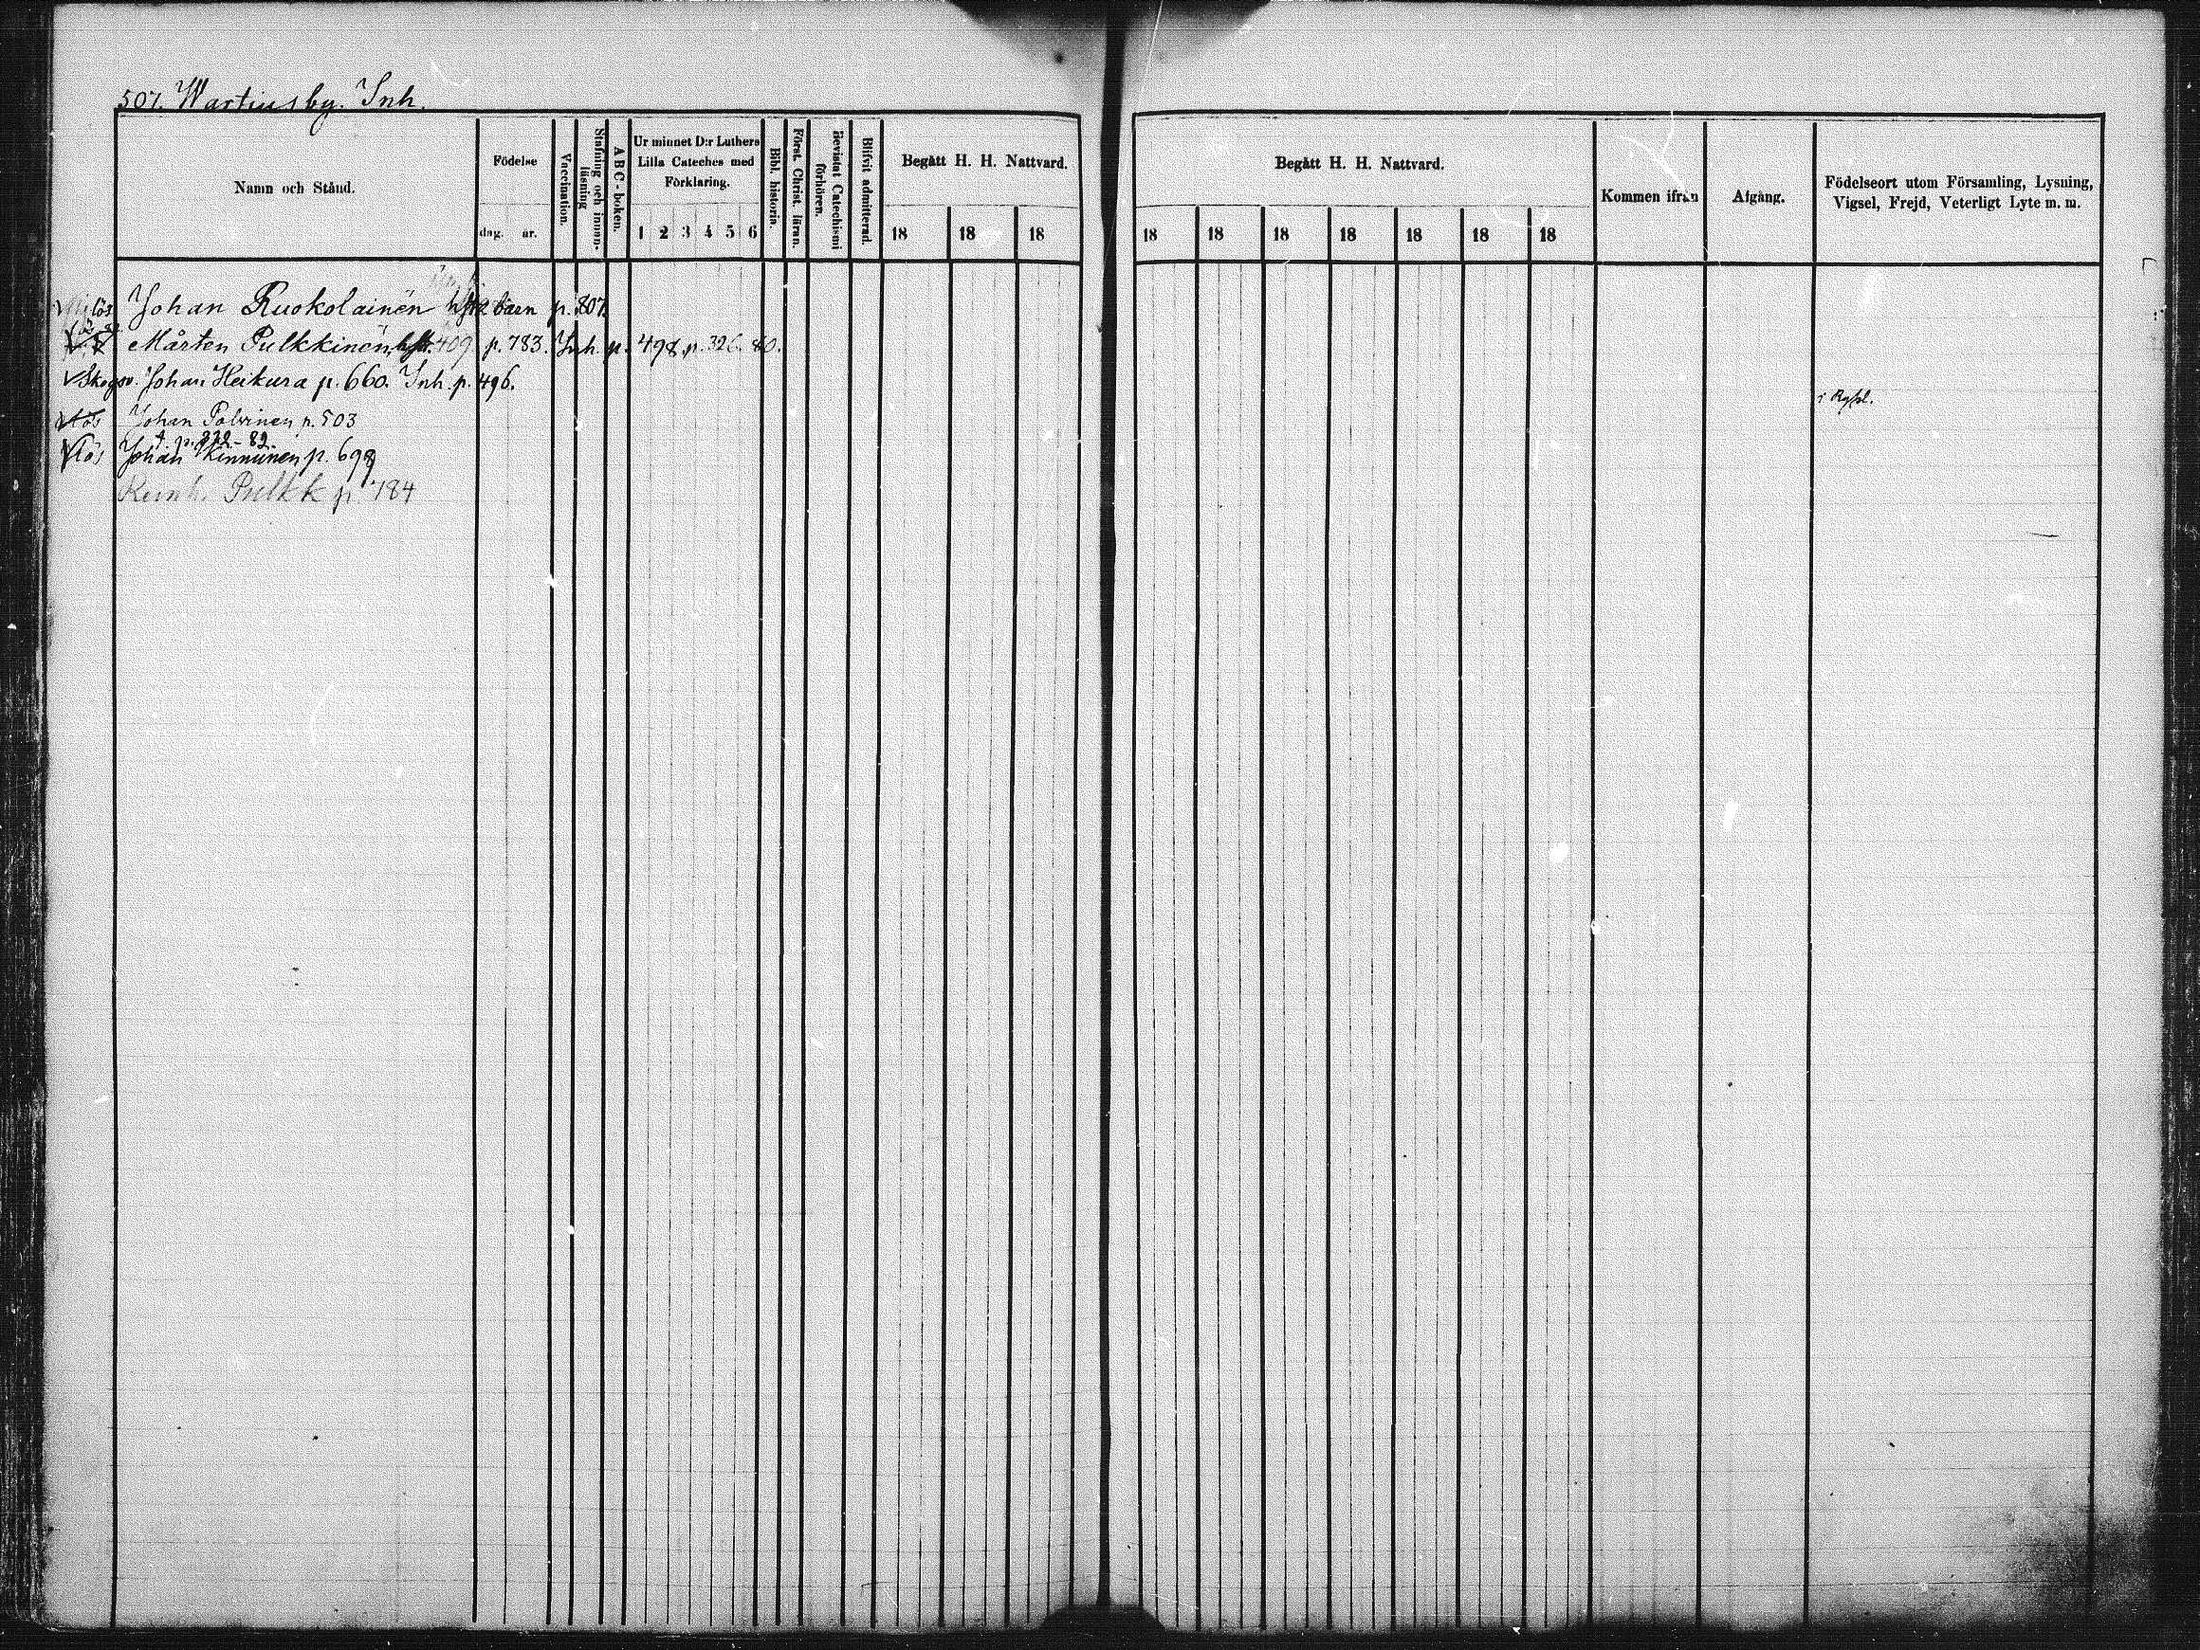 507. Wartiusby. Inh.
Namn och Stånd.
Födelse
dag. år.
Vaccination.
Stafning och innan-läsning
A B C-boken.
Ur minnet D:r Luthers
Lilla Cateches med
Förklaring.
1 2 3 4 5 6
Bibl. historia.
Först. Christ. läran.
Bevistat Catechismi förhören.
Blifvit admitterad.
Begått H. H. Nattvard.
18 18 18
Begått H. H. Nattvard.
18 18 18 18 18 18 18
Kommen ifrån
Afgång.
Födelseort utom Församling, Lysning,
Vigsel, Frejd, Veterligt Lyte m. m.
lös Johan Ruokolainen barn p. 807.
Mårten Pulkkinen 409 p. 783. Inh. p. 498. p. 326. 80.
Skogsv. Johan Heikura p. 660. Inh. p. 496.
i
lös Johan Polvinen p. 503
p. 372-82.
lös Johan Kinnunen p. 698
Reinh. Pulkk p 784